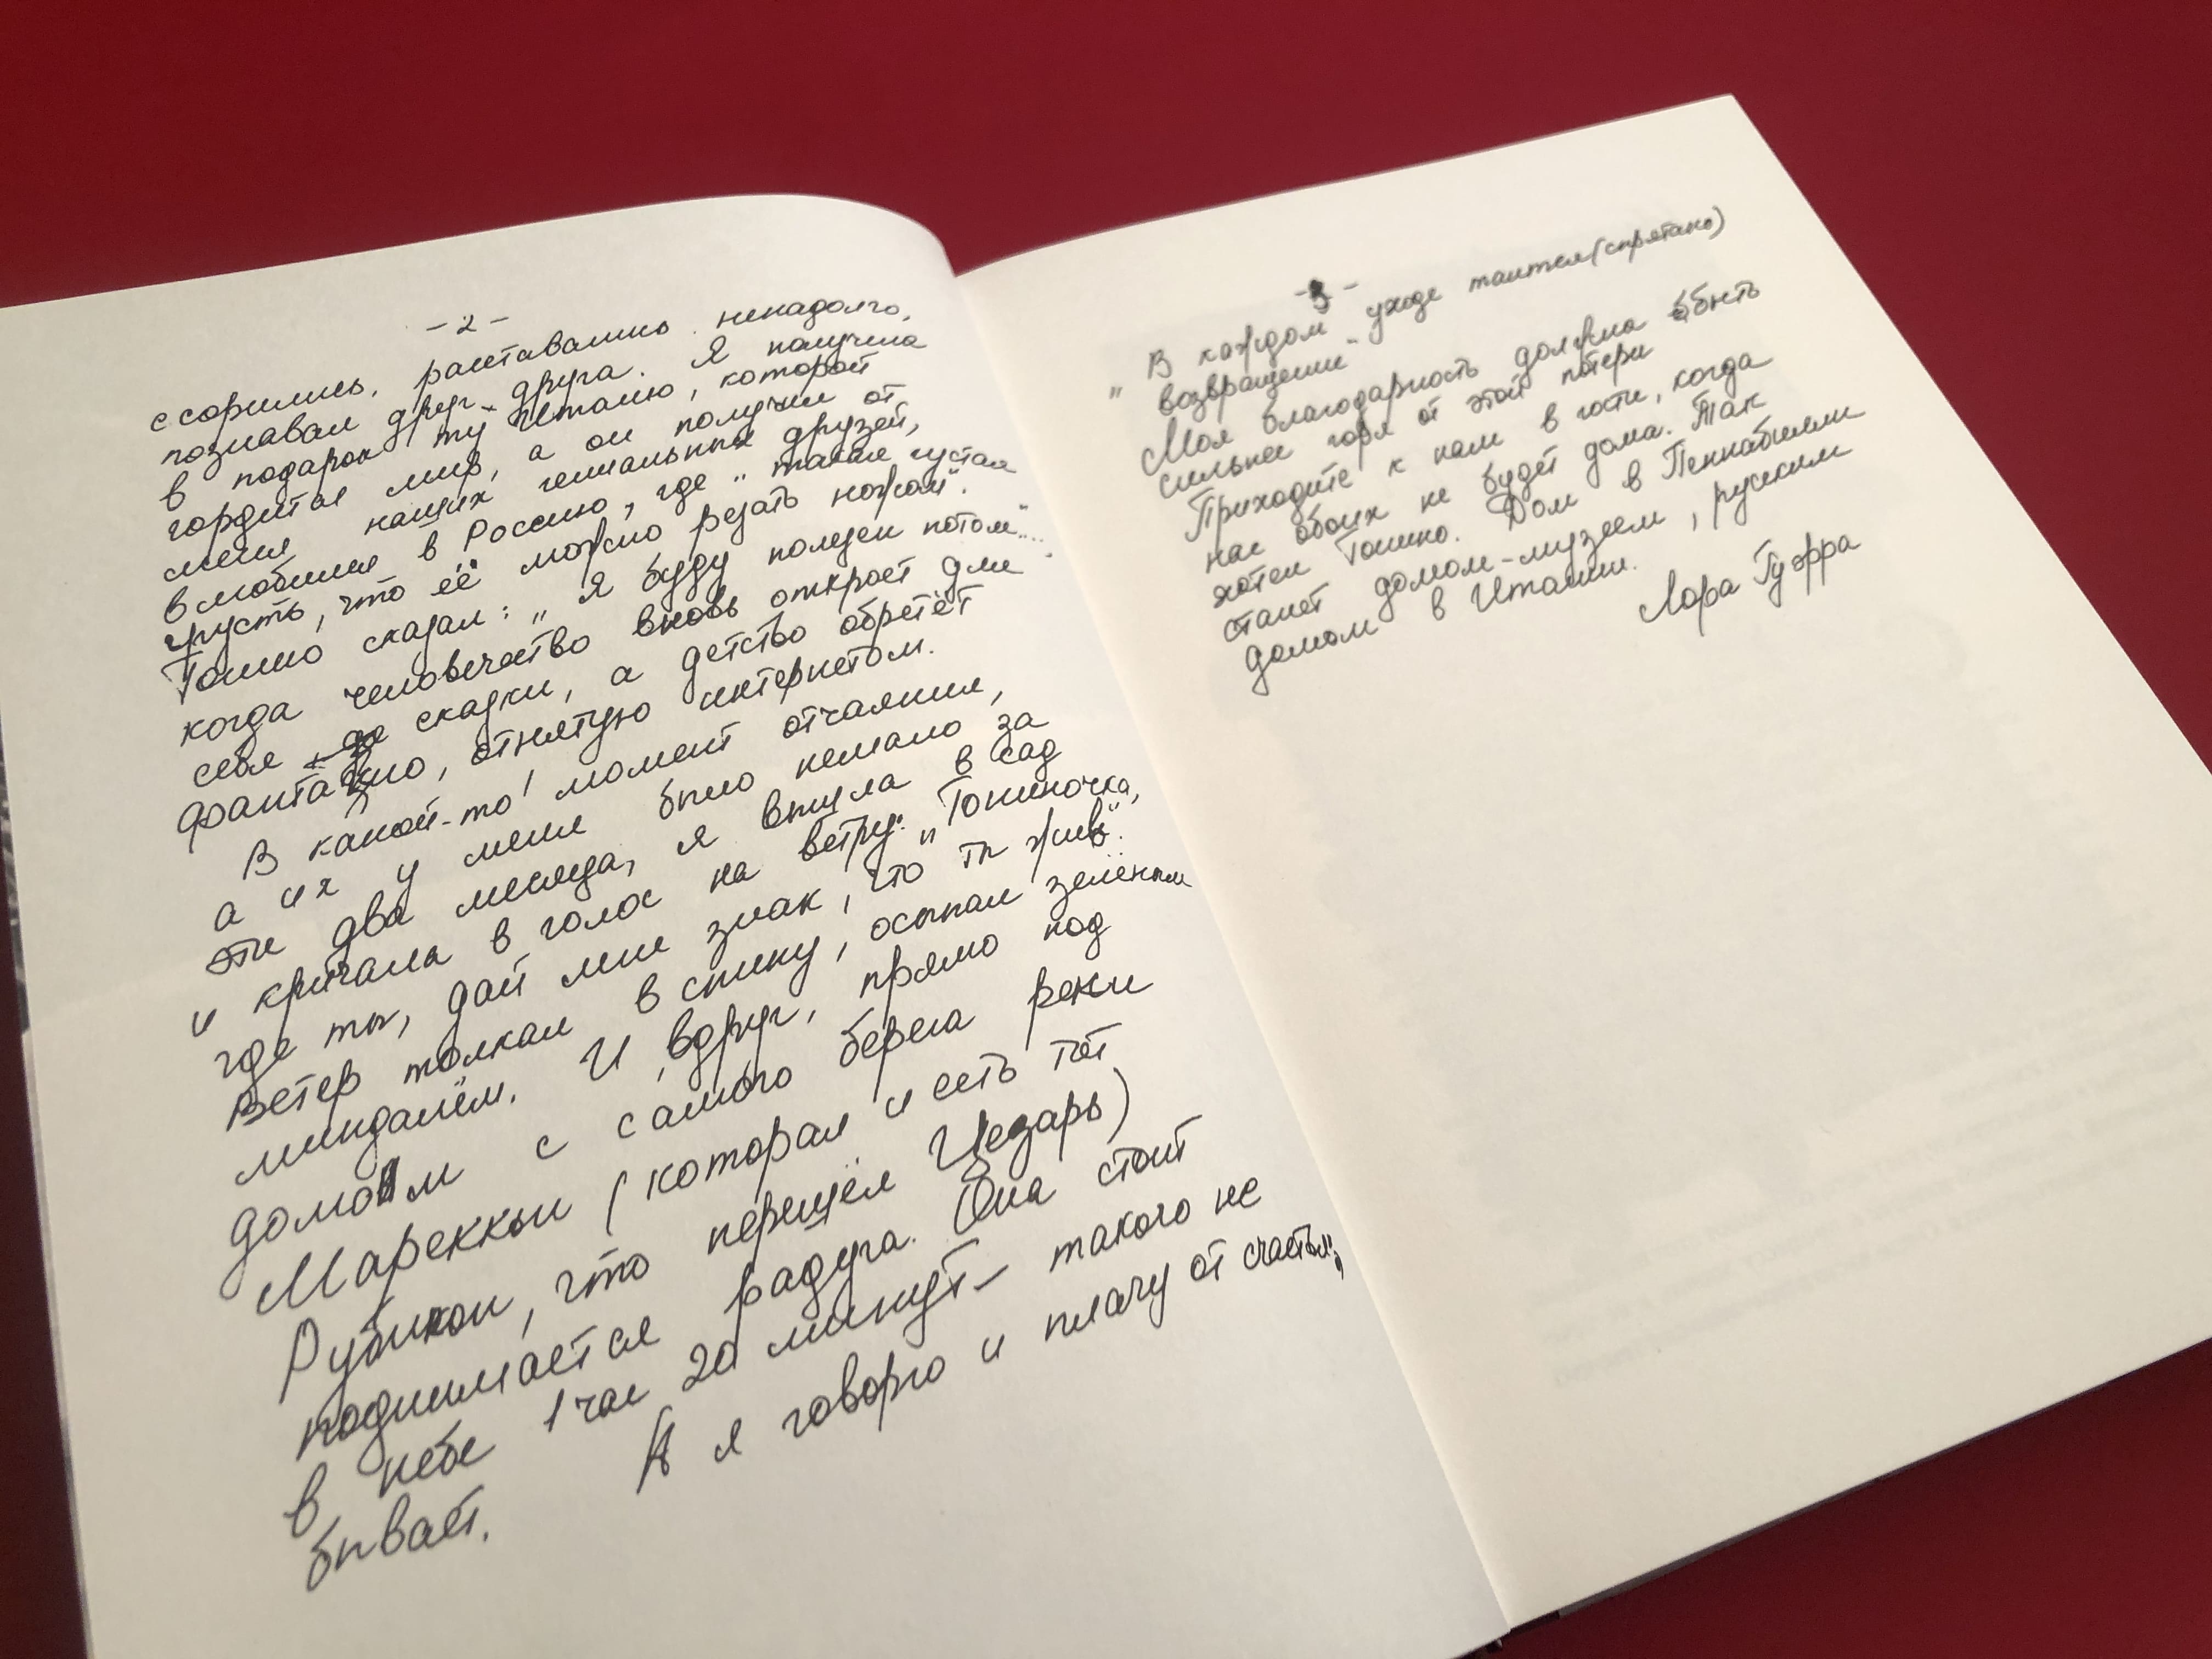 -2-
ссорились, расставались ненадолго,
познавали друг-друга. Я получила
в подарок ту Италию, которой
гордится мир, а он получил от
меня наших гениальных друзей,
влюбился в Россию, где „такая густая
грусть, что её можно резать ножом".
Тонино сказал: „Я буду полезен потом"...
когда человечество вновь откроет для
себя сказки, а детство обретёт
фантазию, отнятую интернетом.
В какой-то момент отчаяния,
а их у меня было немало за
эти два месяца, я вышла в сад
и кричала в голос на ветру: „Тониночка,
где ты, дай мне знак, что ты жив".
Ветер толкал в спину, осыпал зелёным
миндалём. И, вдруг, прямо под
домом с самого берега реки
Мареккьи (которая и есть тот
Рубикон, что перешёл Цезарь)
поднимается радуга. Она стоит
в небе 1 час 20 минут – такого не
бывает. А я говорю и плачу от счастья;
-3-
„В каждом уходе таится (спрятано)
возвращение"
Моя благодарность должна быть
сильнее горя от этой потери
Приходите к нам в гости, когда
нас обоих не будет дома. Так
хотел Тонино. Дом в Пеннабилли
станет домом-музеем, русским
домом в Италии.
Лора Гуэрра